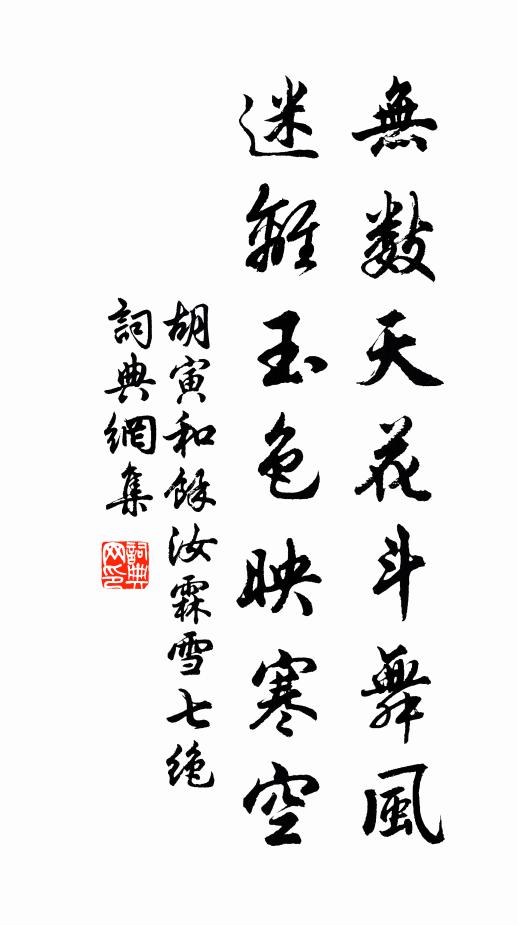 無數天花斗舞風
迷離玉色映寒空
胡寅和餘汝霖雪七絕
詞典網集
詞典
网印